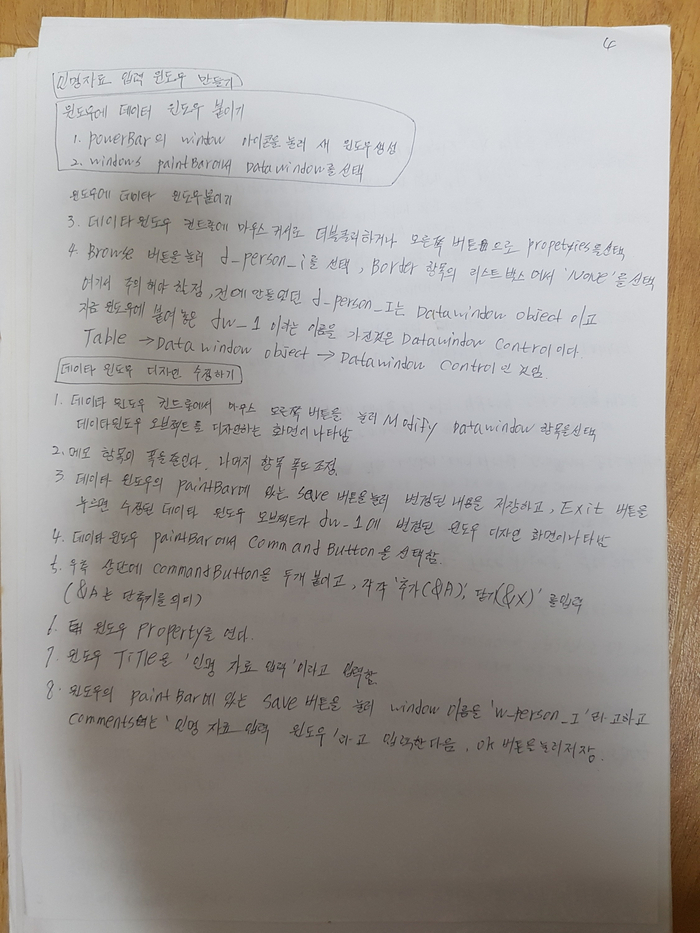 4
인명자료 입력 윈도우 만들기
윈도우에 데이터 윈도우 붙이기
1. powerBar의 window 아이콘을 눌러 새 윈도우 생성
2. windows paintBar에서 Datawindow를 선택
윈도우에 데이타 윈도우붙이기
3. 데이타윈도우 컨트롤에 마우스 커서로 더블클릭하거나 오른쪽 버튼으로 propetyies를선택
4. Browse 버튼을 눌러 d_person_i를 선택, Border 항목의 리스트 박스에서 'NONE'을 선택
여기서 주의 해야 할점, 전에 만들었던 d_person_I는 Datawindow object 이고
지금 윈도우에 붙여 놓은 dw_1 이라는 이름을 가진것은 Datawindow Control이다
Table → Datawindow object → Datawindow Control인 것임.
데이타 윈도우 디자인 수정하기
1. 데이타 윈도우 컨트롤에서 마우스 오른쪽 버튼을 눌러 Modify Datawindow 항목을선택
데이타윈도우 오브젝트를 디자인하는 화면이나타남
2. 메모 항목의 폭을줄인다. 나머지 항목 폭도 조정.
3. 데이타 윈도우의 paintBar에 있는 save 버튼을눌러 변경된 내용을 저장하고, Exit 버튼을
누르면 수정된 데이타 윈도우 오브젝트가 dw_1에 변경된 윈도우 디자인 화면이나타남
4. 데이타윈도우 paintBar에서 Command Button을 선택함.
5. 우측 상단에 commandButton을 두개 붙이고, 각각 '추가(&A)', 닫기(&X)' 를입력
(&A는 단축키를 의미)
6. 윈도우 Property를 연다.
7. 윈도우 TiTle을 '인명 자료 입력'이라고 입력함
8. 윈도우의 paintBar에 있는 save 버튼을 눌러 window 이름을 'w_person_I'라고하고
comments에는 '인명 자료 입력 윈도우'라고 입력한다음, ok 버튼을눌러저장.